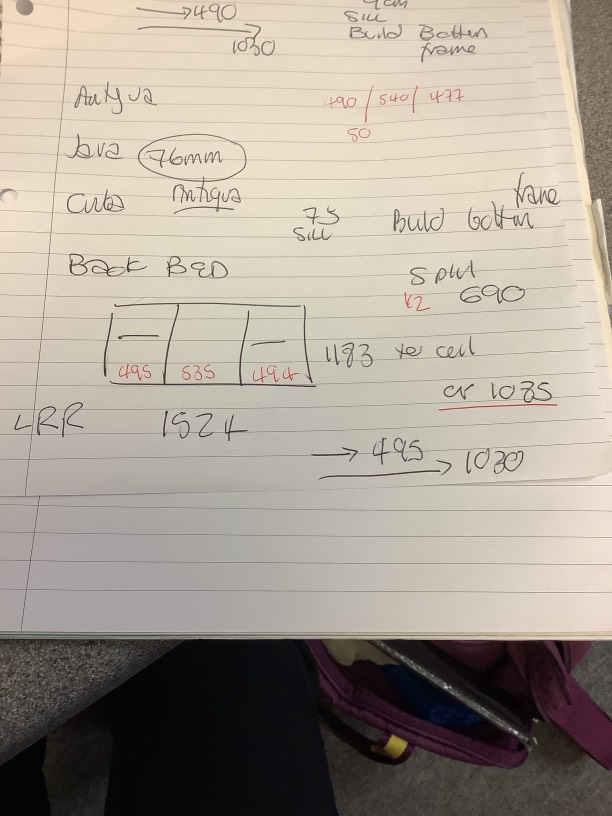 → 490
→ 1030
sill
Build Botten
frame
Antgua
490 / 540 / 477
50
Java 76mm
Cuba Antiqua
75
Sill
Build botten
frame
Back BED
Split
x2 690
495 535 494
1183 xe ceil
or 1085
LRR 1524
→ 495
→ 1030